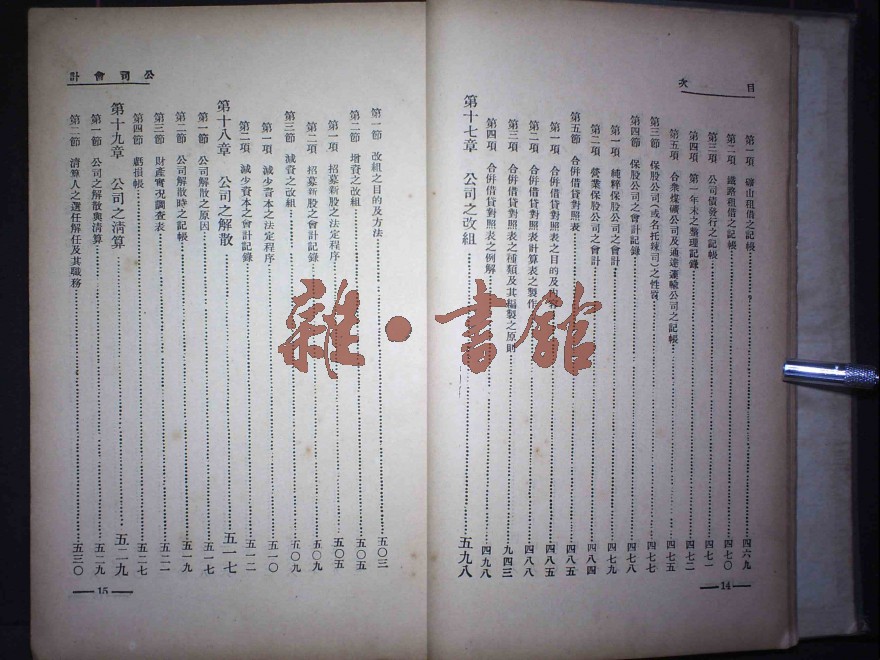 目次
第一項 礦山租借之記帳 四六九
第二項 鐵路租借之記帳 四七〇
第三項 公司債發行之記帳 四七一
第四項 第一年末之整理記錄 四七二
第五項 合衆煤礦公司及通達運輸公司之記帳 四七五
第三節 保股公司(或名托辣司)之性質 四七七
第四節 保股公司之會計記錄 四七八
第一項 純粹保股公司之會計 四七九
第二項 營業保股公司之會計 四八四
第五節 合併借貸對照表 四八五
第一項 合併借貸對照表之目的及內容 四八五
第二項 合併借貸對照表計算表之製作 四八八
第三項 合併借貸對照表之種類及其編製之原則 九四三
第四項 合併借貸對照表之例解 四九八
第十七章 公司之改組 五九八
14
公司會計
第一節 改組之目的及方法 五〇三
第二節 增資之改組 五〇五
第一項 招募新股之法定程序 五〇五
第二項 招募新股之會計記錄 五〇九
第三節 減資之改組 五〇九
第一項 減少資本之法定程序 五一〇
第二項 減少資本之會計記錄 五一二
第十八章 公司之解散 五一七
第一節 公司解散之原因 五一七
第二節 公司解散時之記帳 五一九
第三節 財產實況調查表 五二二
第四節 虧損帳 五二七
第十九章 公司之清算 五二九
第一節 公司之解散與清算 五二九
第二節 清算人之選任解任及其職務 五三〇
15
雜·書館